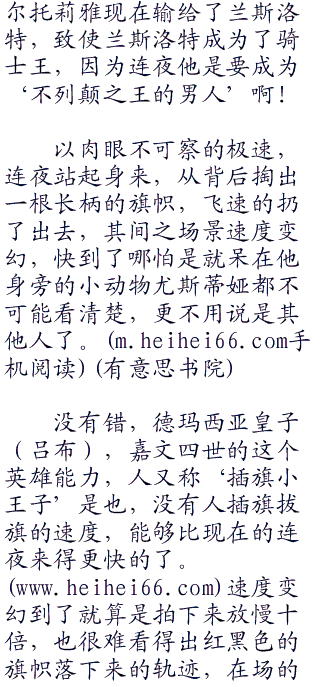 尔托莉雅现在输给了兰斯洛
特，致使兰斯洛特成为了骑
士王，因为连夜他是要成为
‘不列颠之王的男人’啊！
以肉眼不可察的极速，
连夜站起身来，从背后掏出
一根长柄的旗帜，飞速的扔
了出去，其间之场景速度变
幻，快到了哪怕是就呆在他
身旁的小动物尤斯蒂娅都不
可能看清楚，更不用说是其
他人了。(m.heihei66.com手
机阅读)(有意思书院)
没有错，德玛西亚皇子
（吕布），嘉文四世的这个
英雄能力，人又称‘插旗小
王子’是也，没有人插旗拔
旗的速度，能够比现在的连
夜来得更快的了。
(www.heihei66.com)速度变
幻到了就算是拍下来放慢十
倍，也很难看得出红黑色的
旗帜落下来的轨迹，在场的